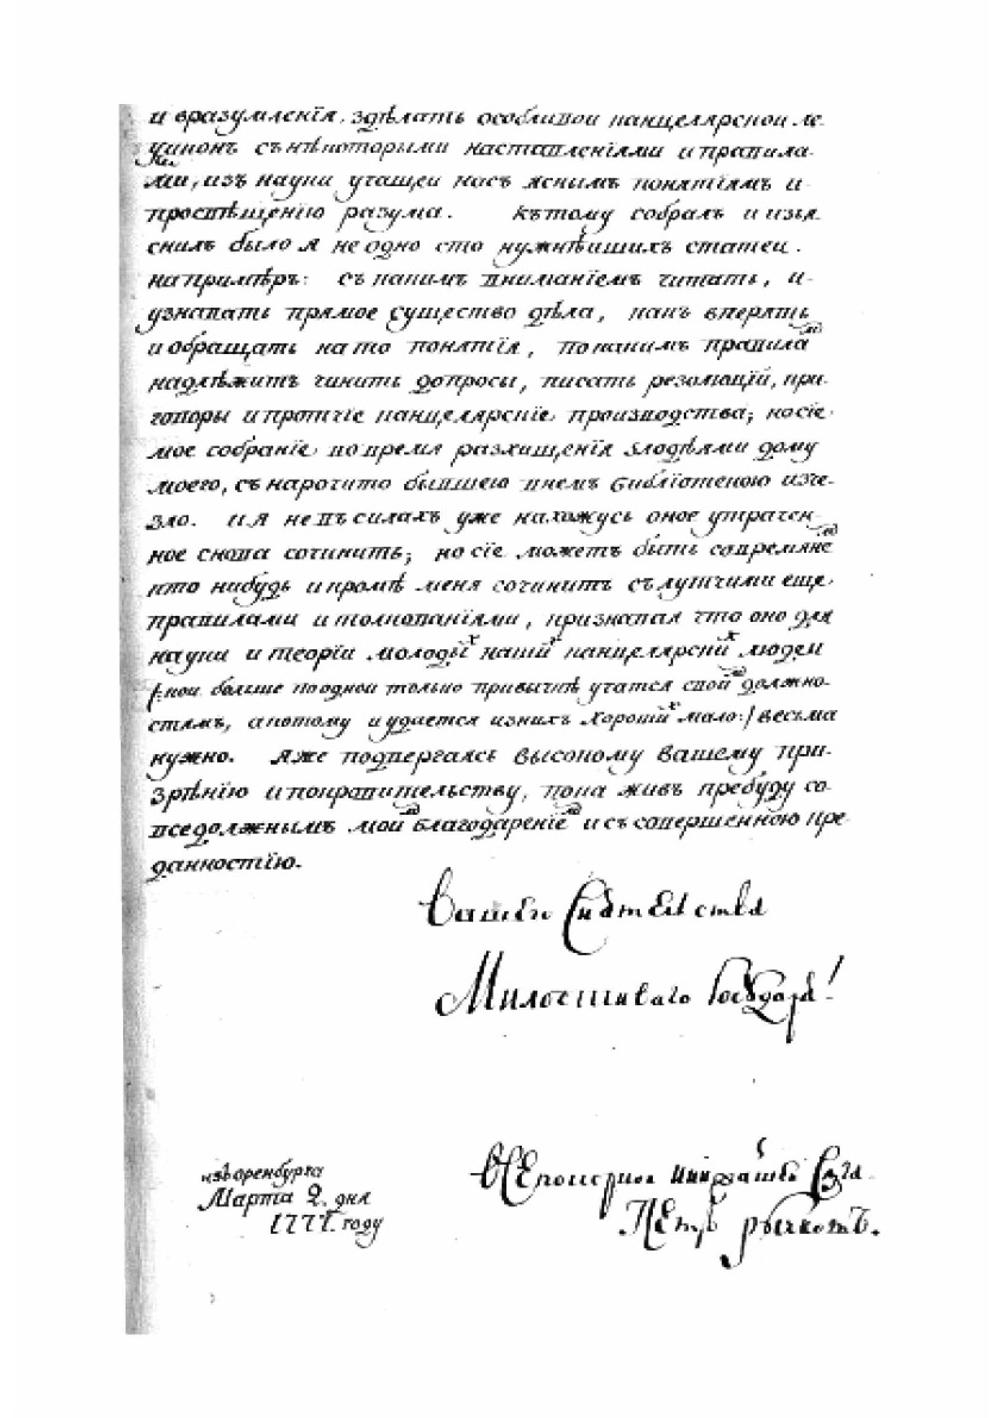 и вразумленїя, здѣлать особливой канцелярской ле
ксиконъ съ нѣкоторыми наставленїями и правила
ми, изъ науки учащей насъ яснымъ понятїямъ и
просвѣщенїю разума. Къ тому собралъ и изъя
снилъ было я не одно сто нужнѣйшихъ статей.
на примѣръ: съ какимъ вниманїемъ читать, и
узнавать прямое существо дѣла, какъ вперять
и обращать на то понятїя, по какимъ правила
надлѣжитъ чинить допросы, писать резолюцїи, при
говоры и протчїе канцелярскїе производства; но сїе
мое собранїе во время разхищенїя злодѣями дому
моего, съ нарочито бывшею в нем библїотекою изче
зло. и я не въ силахъ уже нахожусь оное утрачен
ное снова сочинить; но сїе можетъ быть современе
кто нибудь и кромѣ меня сочинитъ съ лутчими еще
правилами и толкованїями, признавая что оно для
науки и теорїи молодых наших канцелярских людей
/:кои больше по одной только привычкѣ учатся своим должно
стямъ, а потому и удается изнихъ хороших мало:/ весьма
нужно. Яже подвергаясь высокому вашему при
зрѣнїю и покравительству, пока живъ пребуду со
вседолжнымъ моим благодаренїем и съ совершенною пре
данностїю.
Вашего Сиятелства
Милостиваго Государя!
изъ оренбурга
Марта 2. дня
1777. году
Всепокорной слуга
Петръ рычковъ.